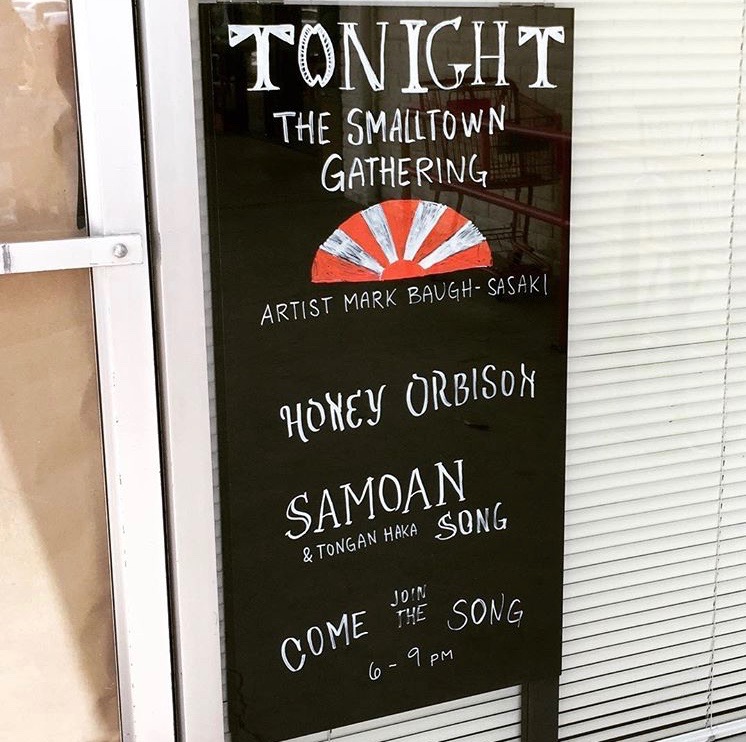 TONIGHT
THE SMALLTOWN
GATHERING
ARTIST MARK BAUGH-SASAKI
HONEY ORBISON
SAMOAN
& TONGAN HAKA SONG
COME JOIN THE SONG
6-9 PM